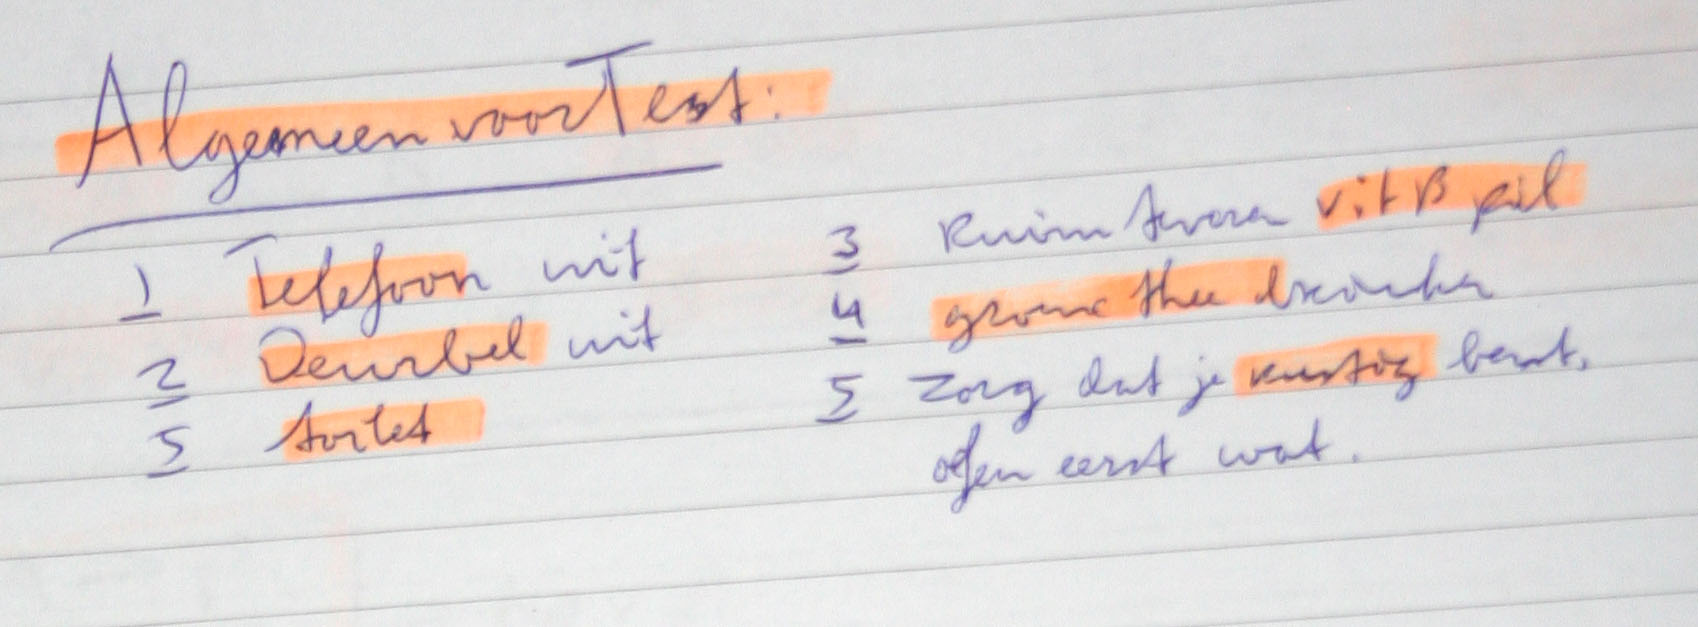 Algemeen voor Test:
1 Telefoon uit
2 Deurbel uit
5 toilet
3 Ruim tevoren vit B pil
4 groene thee drinken
5 Zorg dat je rustig bent,
ofen eerst wat.